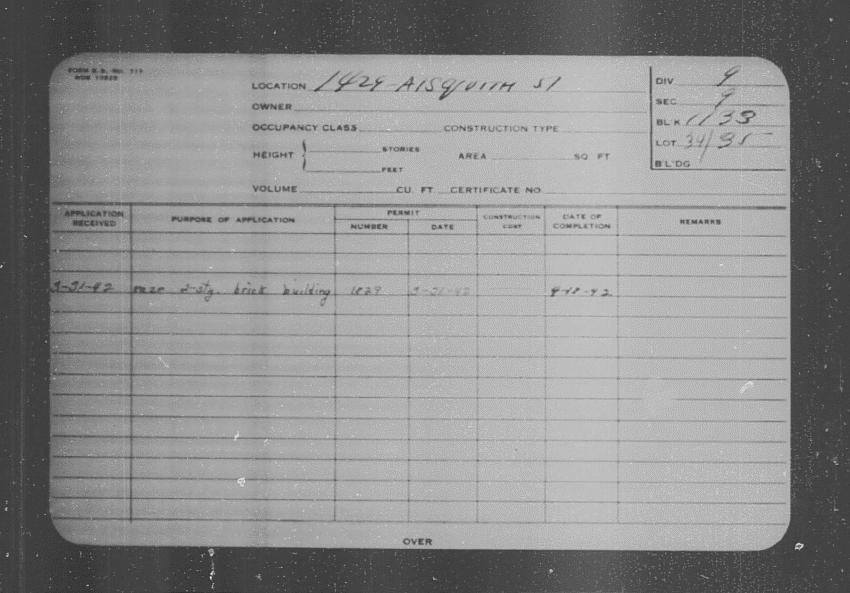 FORM B.B. NO. 711
LOCATION 1429 AISQUITH ST
OWNER
OCCUPANCY CLASS CONSTRUCTION TYPE
HEIGHT STORIES FEET AREA SQ FT
VOLUME CU. FT. CERTIFICATE NO.
DIV 9
SEC 9
BL'K 1133
LOT 34/35
B'L'DG
APPLICATION RECEIVED PURPOSE OF APPLICATION PERMIT NUMBER DATE CONSTRUCTION COST DATE OF COMPLETION REMARKS
3-31-42 raze 2-sty. brick building 1829 3-31-42 4-18-42
OVER